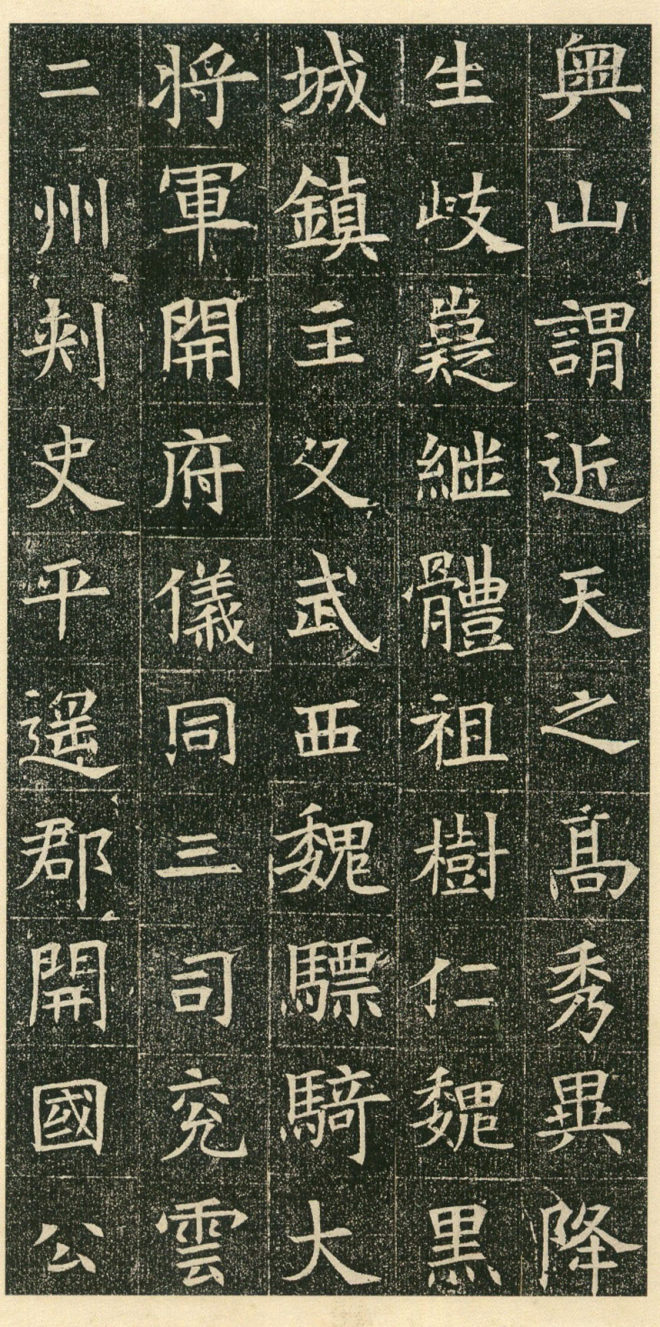 輿山謂近天之高秀異降
生岐嶷継體祖樹仁魏黒
城鎮主父武西魏驃騎大
将軍開府儀同三司兖雲
二州刾史平遥郡開國公